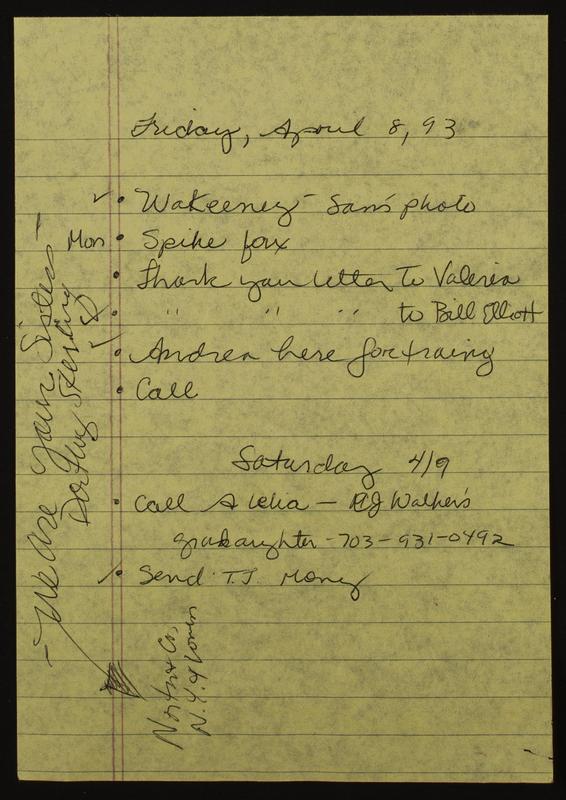 Friday, April 8, 93
✓ • WaKeeney - Sam's photo
Mon • Spike fax
• Thank you letter To Valeria
• " " " to Bill Elliott
✓ • Andrea here for traing
• Call
Saturday 4/9
• Call A'Lelia - MCJ Walker's
gradaughter - 703-931-0492
• Send T.J. Money
- We Are Your Sisters -
Dorothy Sterling
Norton & Co,
N.Y. & London